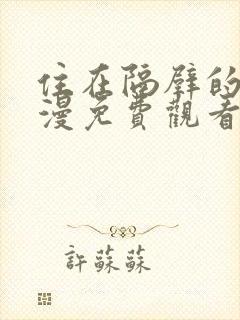 住在隔壁的
漫免費觀看
許蘇蘇